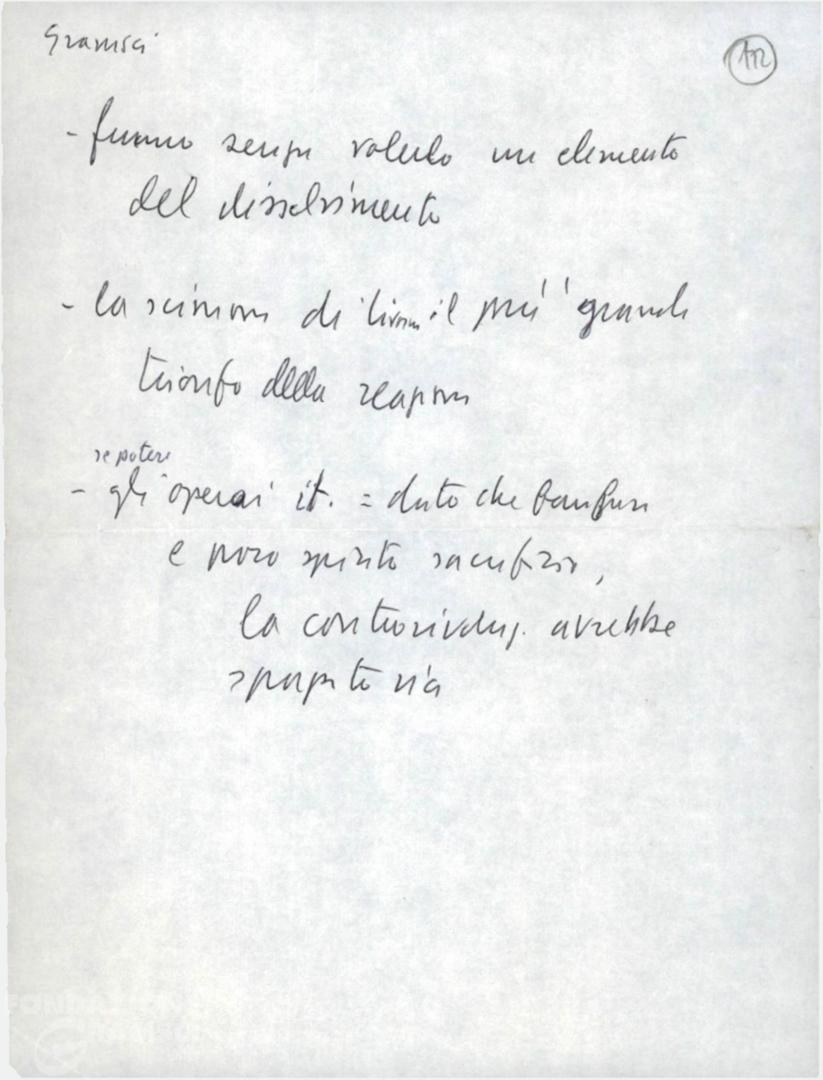 Gramsci
- fummo senza volerlo un elemento
del dissolvimento
- la scissione di Livorno il più grande
trionfo della reazione
se potere
- gli operai it. = dato che
e poco spirito sacrifizio,
la controrivoluz. avrebbe
spazzato via